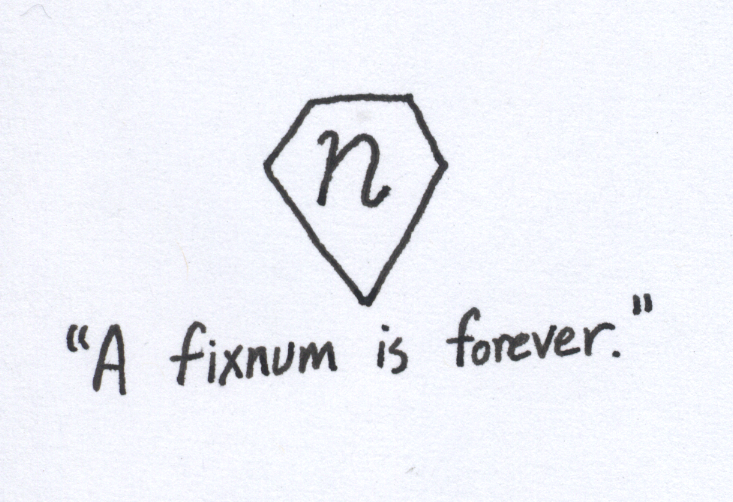 n
“A fixnum is forever.”